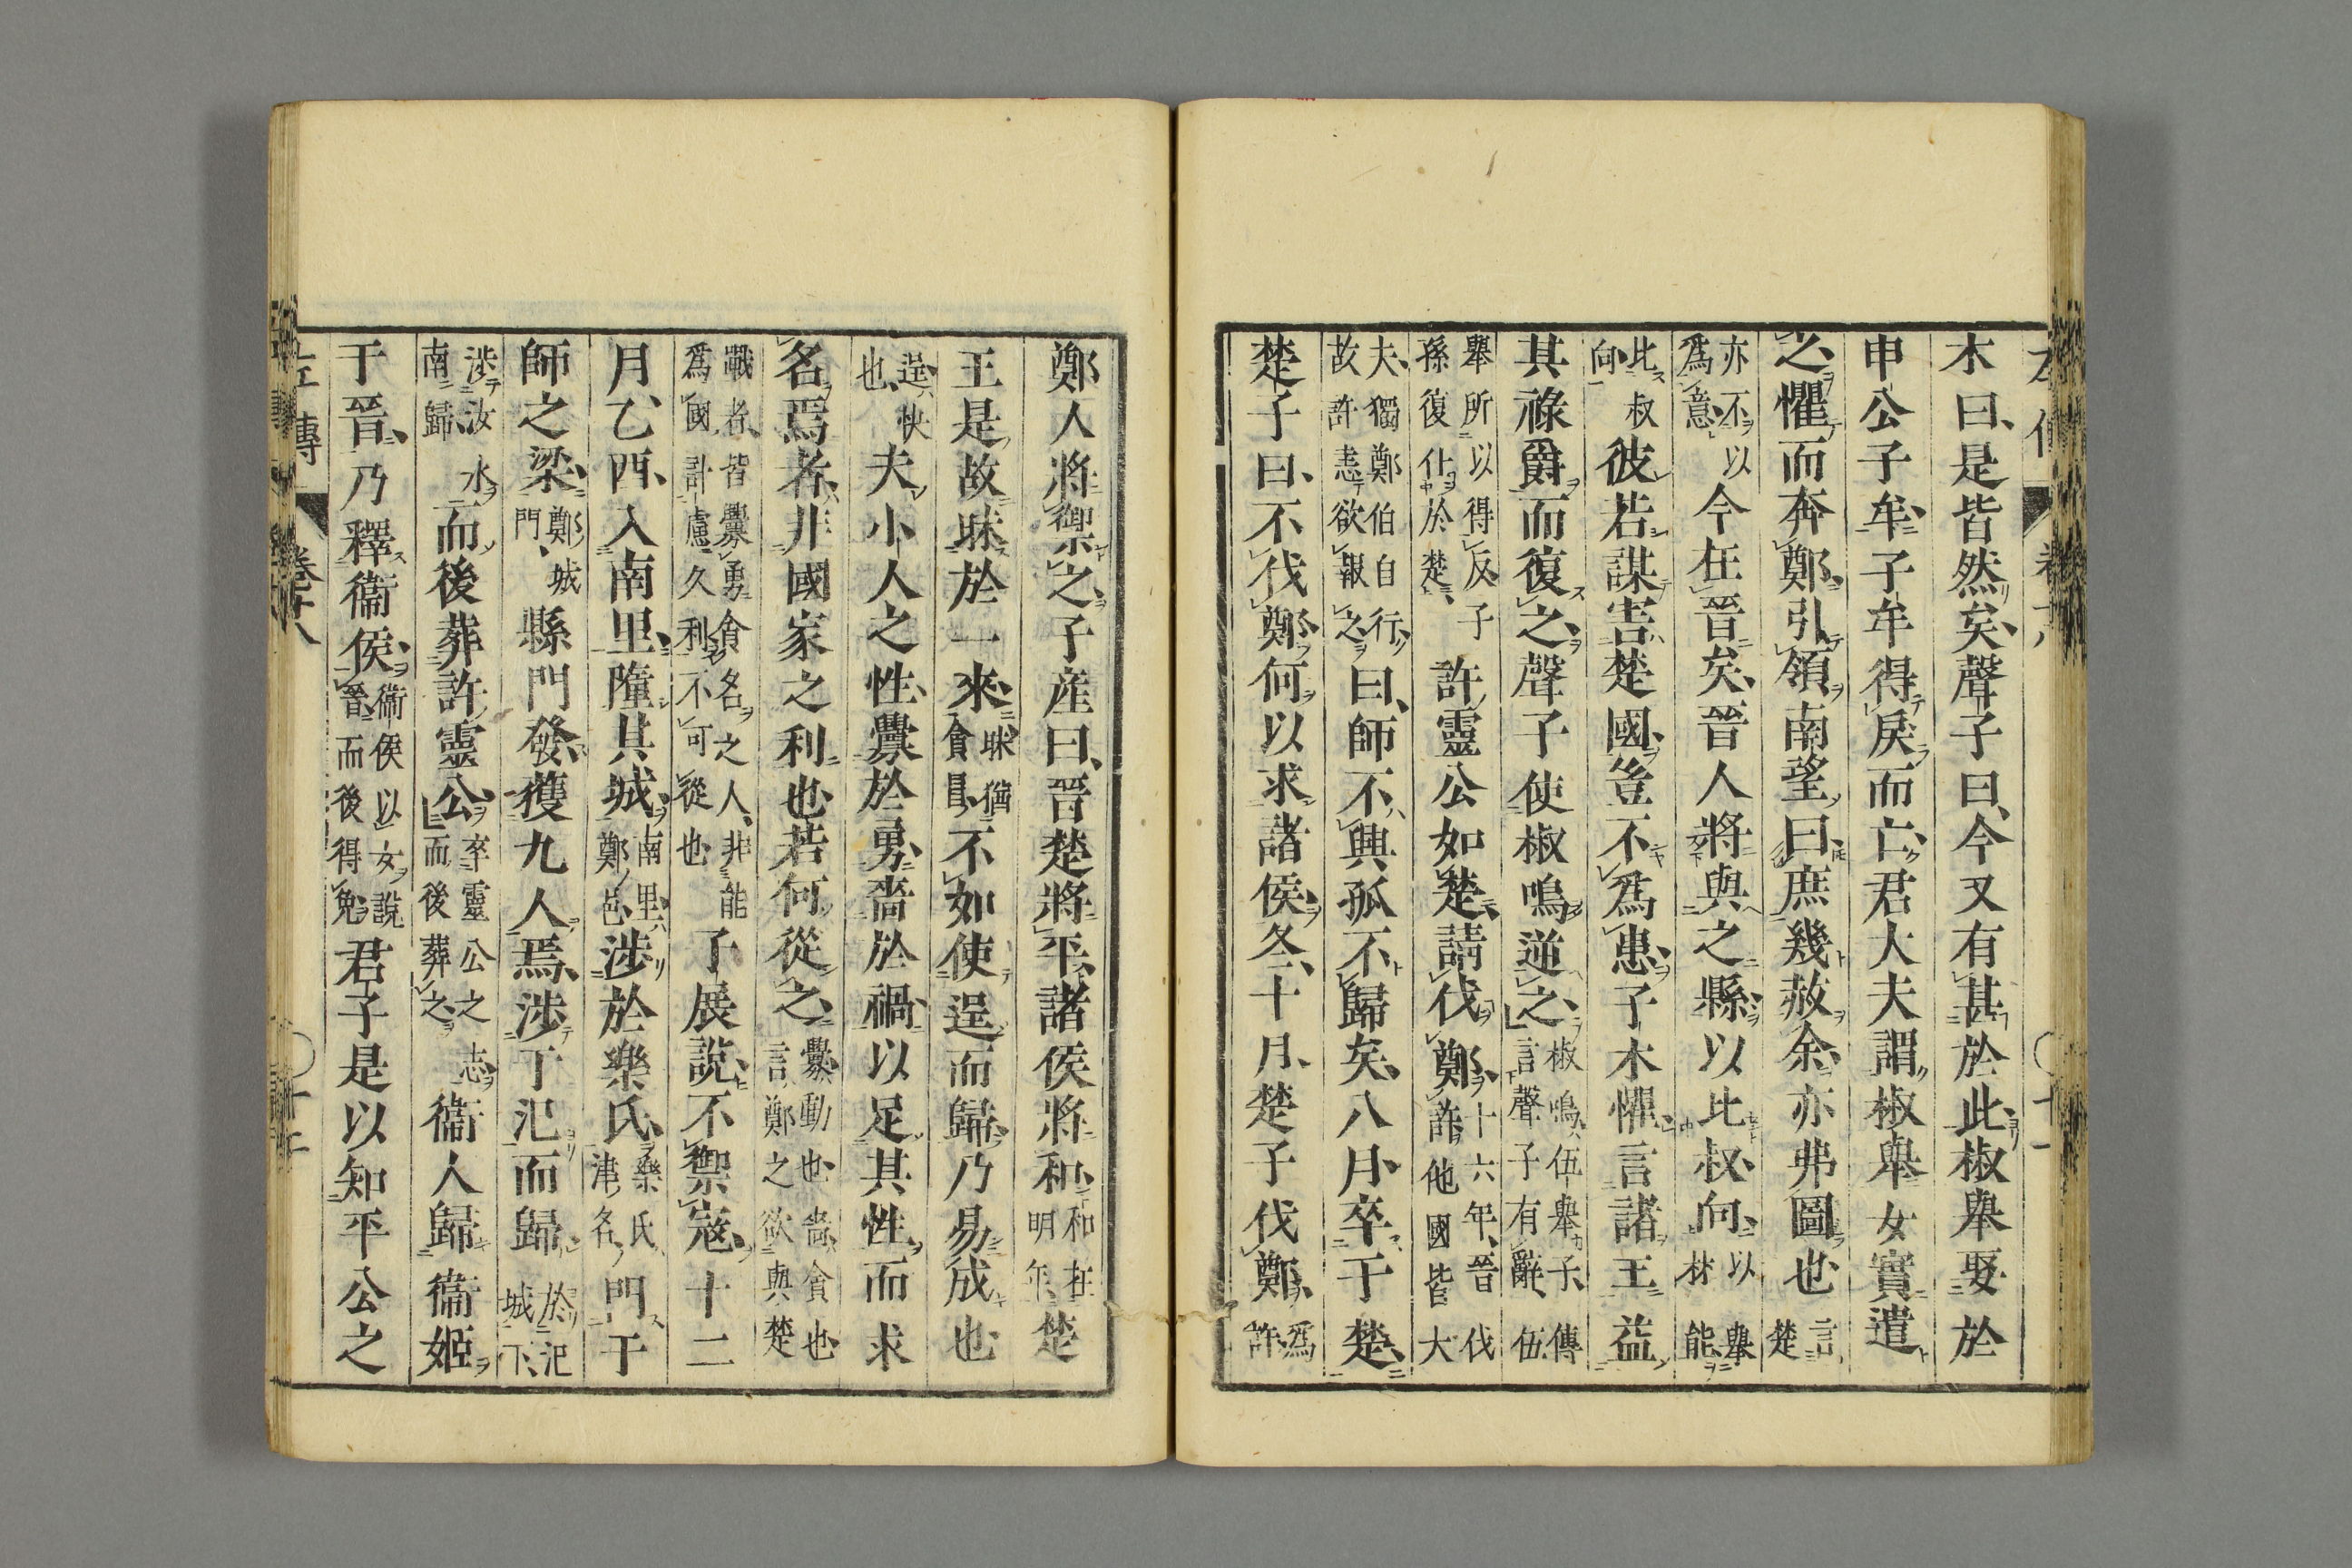 木曰、是皆然矣、聲子曰、今又有甚於此、椒舉娶於
申公子牟、子牟得戻而亡、君大夫謂椒舉女實遣
之、懼而奔鄭、引領南望、曰、庶幾赦余、亦弗圖也 言楚
亦不以爲意 今在晉矣、晉人將與之縣、以比叔向、以舉材能
比叔向 彼若謀害楚國、豈不爲患、子木懼、言諸王、益
其祿爵而復之、聲子使椒鳴逆之、椒鳴、伍舉子、傳言聲子有辭、伍
舉所以得反、子孫復仕於楚、 許靈公如楚、請伐鄭、十六年、晉伐許、他國皆大
夫、獨鄭伯自行、故許恚欲報之、 曰、師不興、孤不歸矣、八月、卒于楚、
楚子曰、不伐鄭、何以求諸侯、冬、十月、楚子伐鄭、爲許
鄭人將禦之、子產曰、晉楚將平、諸侯將和、和在明年、楚
王是故昧於一來、昧猶貪冒、不如使逞而歸、乃易成也
逞、快也、 夫小人之性、釁於勇、嗇於禍、以足其性、而求
名焉者、非國家之利也、若何從之、釁、動也、嗇、貪也、言鄭之欲與楚
戰者、皆釁勇貪名之人、非能爲國計慮久利、不可從也 子展說、不禦寇、十二
月、乙酉、入南里、隳其城、南里、鄭邑、涉於樂氏、樂氏、津名、門于
師之梁、鄭城門、 縣門發、獲九人焉、涉于氾而歸、於氾城下、
涉汝水南歸、 而後葬許靈公、卒靈公之志、而後葬之、 衞人歸衞姬
于晉、乃釋衞侯、衞侯以女說晉、而後得免 君子是以知平公之
左傳 卷十八